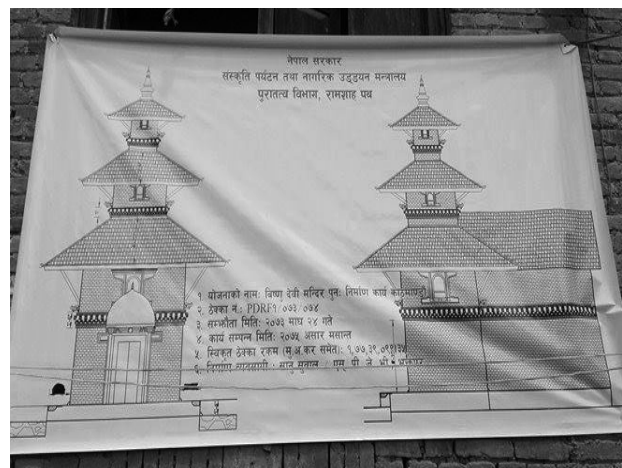 नेपाल सरकार
संस्कृति पर्यटन तथा नागरिक उड्डयन मन्त्रालय
पुरातत्व विभाग, रामशाह पथ
१. योजनाको नाम: विष्णु देवी मन्दिर पुन: निर्माण कार्य काठमाण्डौ
२. ठेक्का न.: PDRF१/०७३/०७४
३. सम्झौता मिति: २०७३ माघ २४ गते
४. कार्य सम्पन्न मिति: २०७५ असार मसान्त
५. स्विकृत ठेक्का रकम (मु.अ.कर समेत): १,७७,३९,०९१।३५
६. निर्माण व्यवसायी :